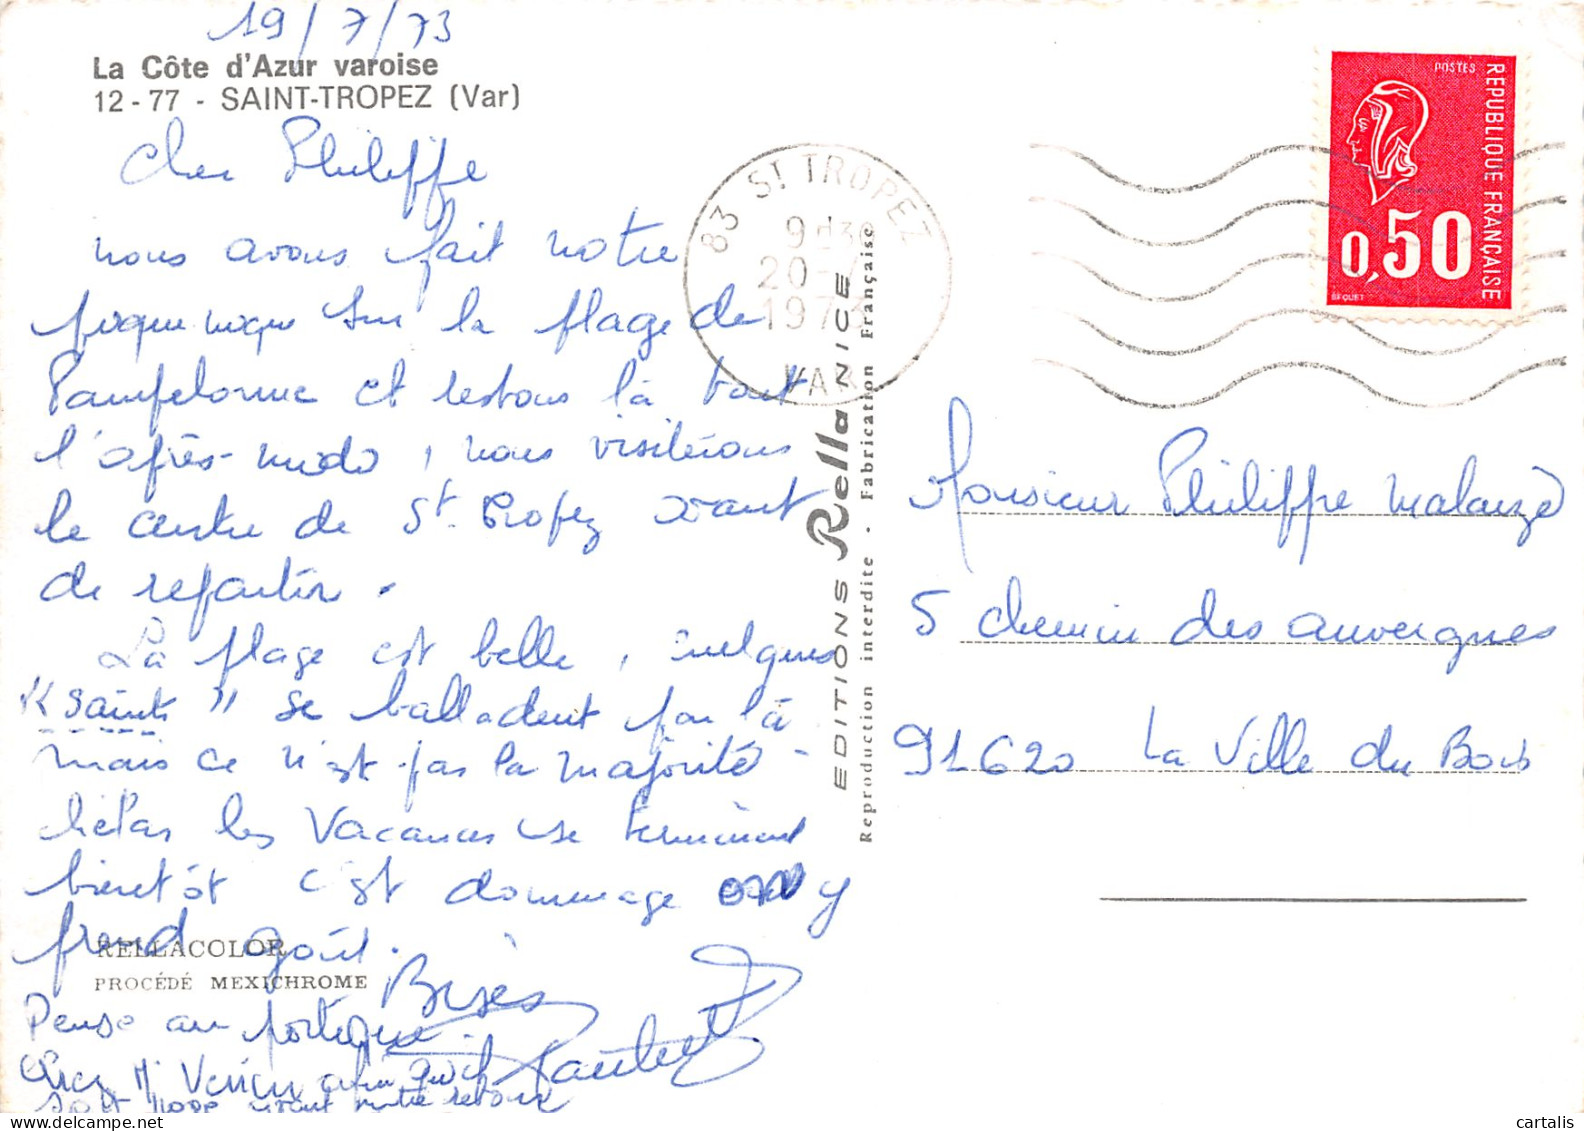 19/7/73
La Côte d'Azur varoise
12-77 - SAINT-TROPEZ (Var)
Cher Philippe
nous avons fait notre
pique nique sur la plage de
Pampelonne et restons là tout
l'après-midi, nous visiterons
le centre de St Tropez avant
de repartir.
La plage est belle, quelques
"saints" se balladent par là
mais ce n'est pas la majorité -
hélas les vacances se terminent
bientôt c'est dommage on y
prend goût.
Bises
Pense au portique
chez Mr afin qu'il
soit posé avant notre retour
RELLACOLOR
PROCÉDÉ MEXICHROME
EDITIONS Rella NICE
Reproduction interdite - Fabrication Française
83 ST TROPEZ
20-7
1973
VAR
POSTES
REPUBLIQUE FRANÇAISE
0,50
BEQUET
Monsieur Philippe Malauzé
5 chemin des auvergnes
91620 La Ville du Bois
cartalis